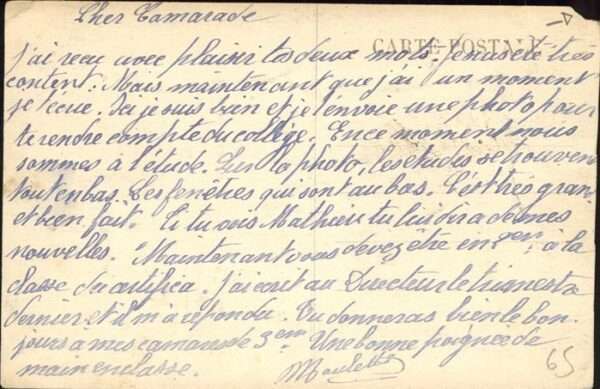 Cher Camarade
CARTE POSTALE
J'ai reçu avec plaisir tes deux mots. J'en ai été très
content. Mais maintenant que j'ai un moment
je t'écris. Ici je suis bien et je t'envoie une photo pour
te rendre compte du collège. En ce moment nous
sommes à l'étude. Sur la photo, les études se trouvent
tout en bas. Les fenêtres qui sont au bas. C'est très grand
et bien fait. Si tu vois Mathieu tu lui dira de mes
nouvelles. Maintenant vous devez être en à la
classe du certifica. J'ai écrit au Directeur le trimestre
dernier et il m'a répondu. Tu donneras bien le bon-
jours a mes camarade de 3em. Une bonne poignée de
main en classe.
65